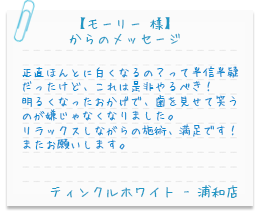 【モーリー 様】
からのメッセージ
正直ほんとに白くなるの？って半信半疑
だったけど、これは是非やるべき！
明るくなったおかげで、歯を見せて笑う
のが嫌じゃなくなりました。
リラックスしながらの施術、満足です！
またお願いします。
ティンクルホワイト - 浦和店